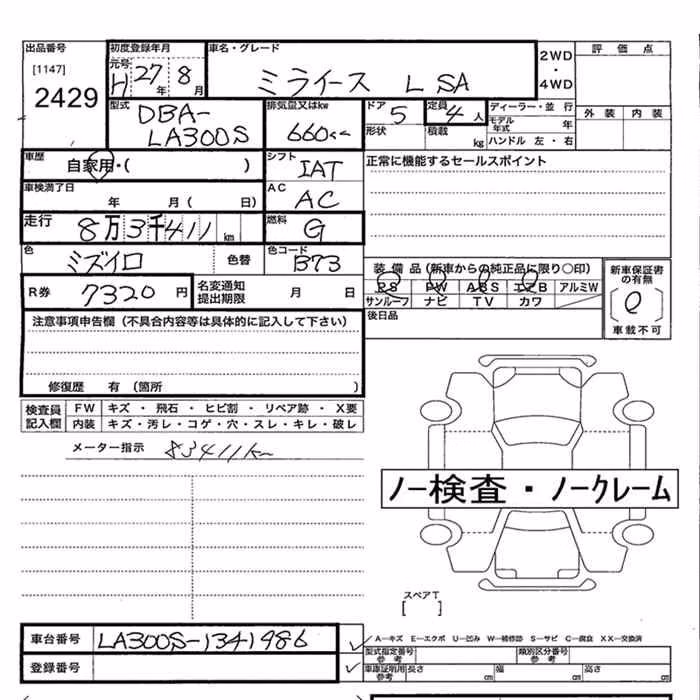 出品番号 初度登録年月 車名・グレード 評価点
[1147] 元号 H 27年 8月 ミライース L SA 2WD・4WD
2429
型式 DBA-LA300S 排気量又はkw 660cc ドア 5 定員 4人 ディーラー・並行 外装 内装
形状 積載 kg モデル年式 年
ハンドル 左・右
車歴 自家用・( ) シフト IAT 正常に機能するセールスポイント
車検満了日 年 月( 日) AC AC
走行 8万3千411km 燃料 G
色 ミズイロ 色替 色コード B73
装備品(新車からの純正品に限り○印) 新車保証書の有無
R券 7320円 名変通知提出期限 月 日 PS PW ABS エアB アルミW
サンルーフ ナビ TV カワ 車載不可
注意事項申告欄(不具合内容等は具体的に記入して下さい) 後日品
修復歴 有(箇所 )
検査員記入欄 FW キズ・飛石・ヒビ割・リペア跡・X要
内装 キズ・汚レ・コゲ・穴・スレ・キレ・破レ
メーター指示 83411km
ノー検査・ノークレーム
スペアT
[ ]
車台番号 LA300S-1341986 A-キズ E-エクボ U-凹み W-補修跡 S-サビ C-腐食 XX-交換済
型式指定番号 参考 類別区分番号 参考
登録番号 車庫証明用 参考 長さ cm 幅 cm 高さ cm